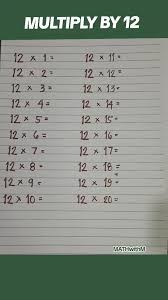 MULTIPLY BY 12
12 x 1=
12 x 2=
12 x 3=
12 x 4=
12 x 5=
12 x 6=
12 x 7=
12 x 8=
12 x 9=
12 x 10=
12 x 11=
12 x 12=
12 x 13=
12 x 14=
12 x 15=
12 x 16=
12 x 17=
12 x 18=
12 x 19=
12 x 20=
MATHwithM